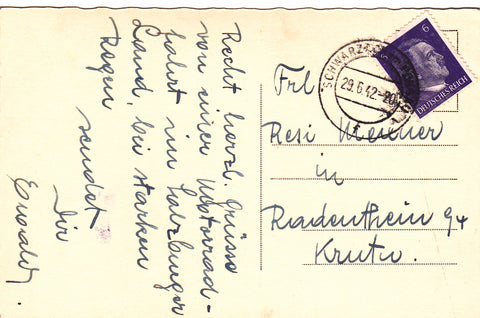 Recht herzl. Grüsse
von einer Motorrad-
fahrt im Salzburger
Land, bei starken
Regen
sendet
Dir
Ewald.
SCHWARZACH
29.6.42.-20
6
DEUTSCHES REICH
Frl
Resi
in
Radenthein 94